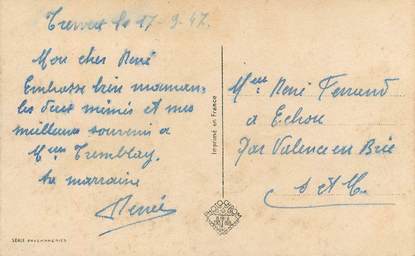 le 17-9-47.
Mon cher René
Embrasse bien maman.
les deux mimis et mes
meilleurs souvenirs a
Mme Tremblay.
ta marraine
Renée
Imprimé en France
Mr René Ferrand
a Echou
par Valence en Brie
S et M.